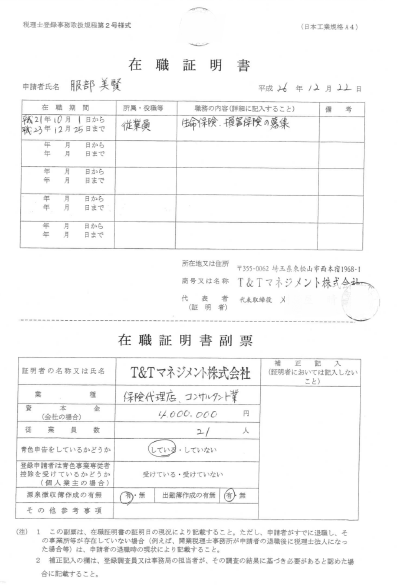 税理士登録事務取扱規程第2号様式 （日本工業規格A4）
在職証明書
申請者氏名 服部 美賢 平成 26 年 12 月 22 日
在職期間 所属・役職等 職務の内容(詳細に記入すること) 備考
平成21年10月1日から 従業員 生命保険、損害保険の募集
平成23年12月25日まで
年 月 日から
年 月 日まで
年 月 日から
年 月 日まで
年 月 日から
年 月 日まで
年 月 日から
年 月 日まで
所在地又は住所 〒355-0062 埼玉県東松山市西本宿1968-1
商号又は名称 T&Tマネジメント株式会社
代表者 代表取締役
(証明者)
在職証明書副票
証明者の名称又は氏名 T&Tマネジメント株式会社 補正記入
(証明者においては記入しないこと)
業種 保険代理店、コンサルタント業
資本金 4,000,000 円
(会社の場合)
従業員数 21 人
青色申告をしているかどうか している・していない
登録申請者は青色事業専従者控除を受けているかどうか 受けている・受けていない
(個人業主の場合)
源泉徴収簿作成の有無 有・無 出勤簿作成の有無 有・無
その他参考事項
(注) 1 この副票は、在職証明書の証明日の現況により記載すること。ただし、申請者がすでに退職し、そ
の事業所等が存在していない場合（例えば、開業税理士事務所が申請者の退職後に税理士法人になっ
た場合等）は、申請者の退職時の現状により記載すること。
2 補正記入欄は、登録調査員又は事務局の担当者が、その調査の結果に基づき必要があると認めた場
合に記載すること。